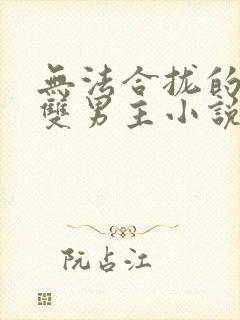 無法合拢的
雙男主小説
阮占江